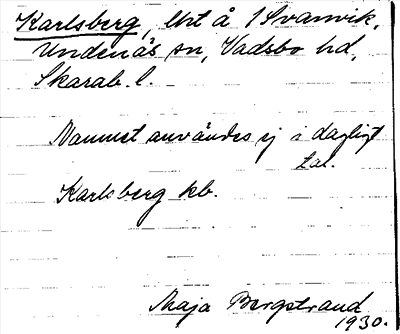 Karlsberg, lht å 1 Svanvik,
Undenäs sn, Vadsbo hd,
Skarab. l.
Namnet användes ej i dagligt
tal.
Karlsberg kb.
Maja Bergstrand
1930.